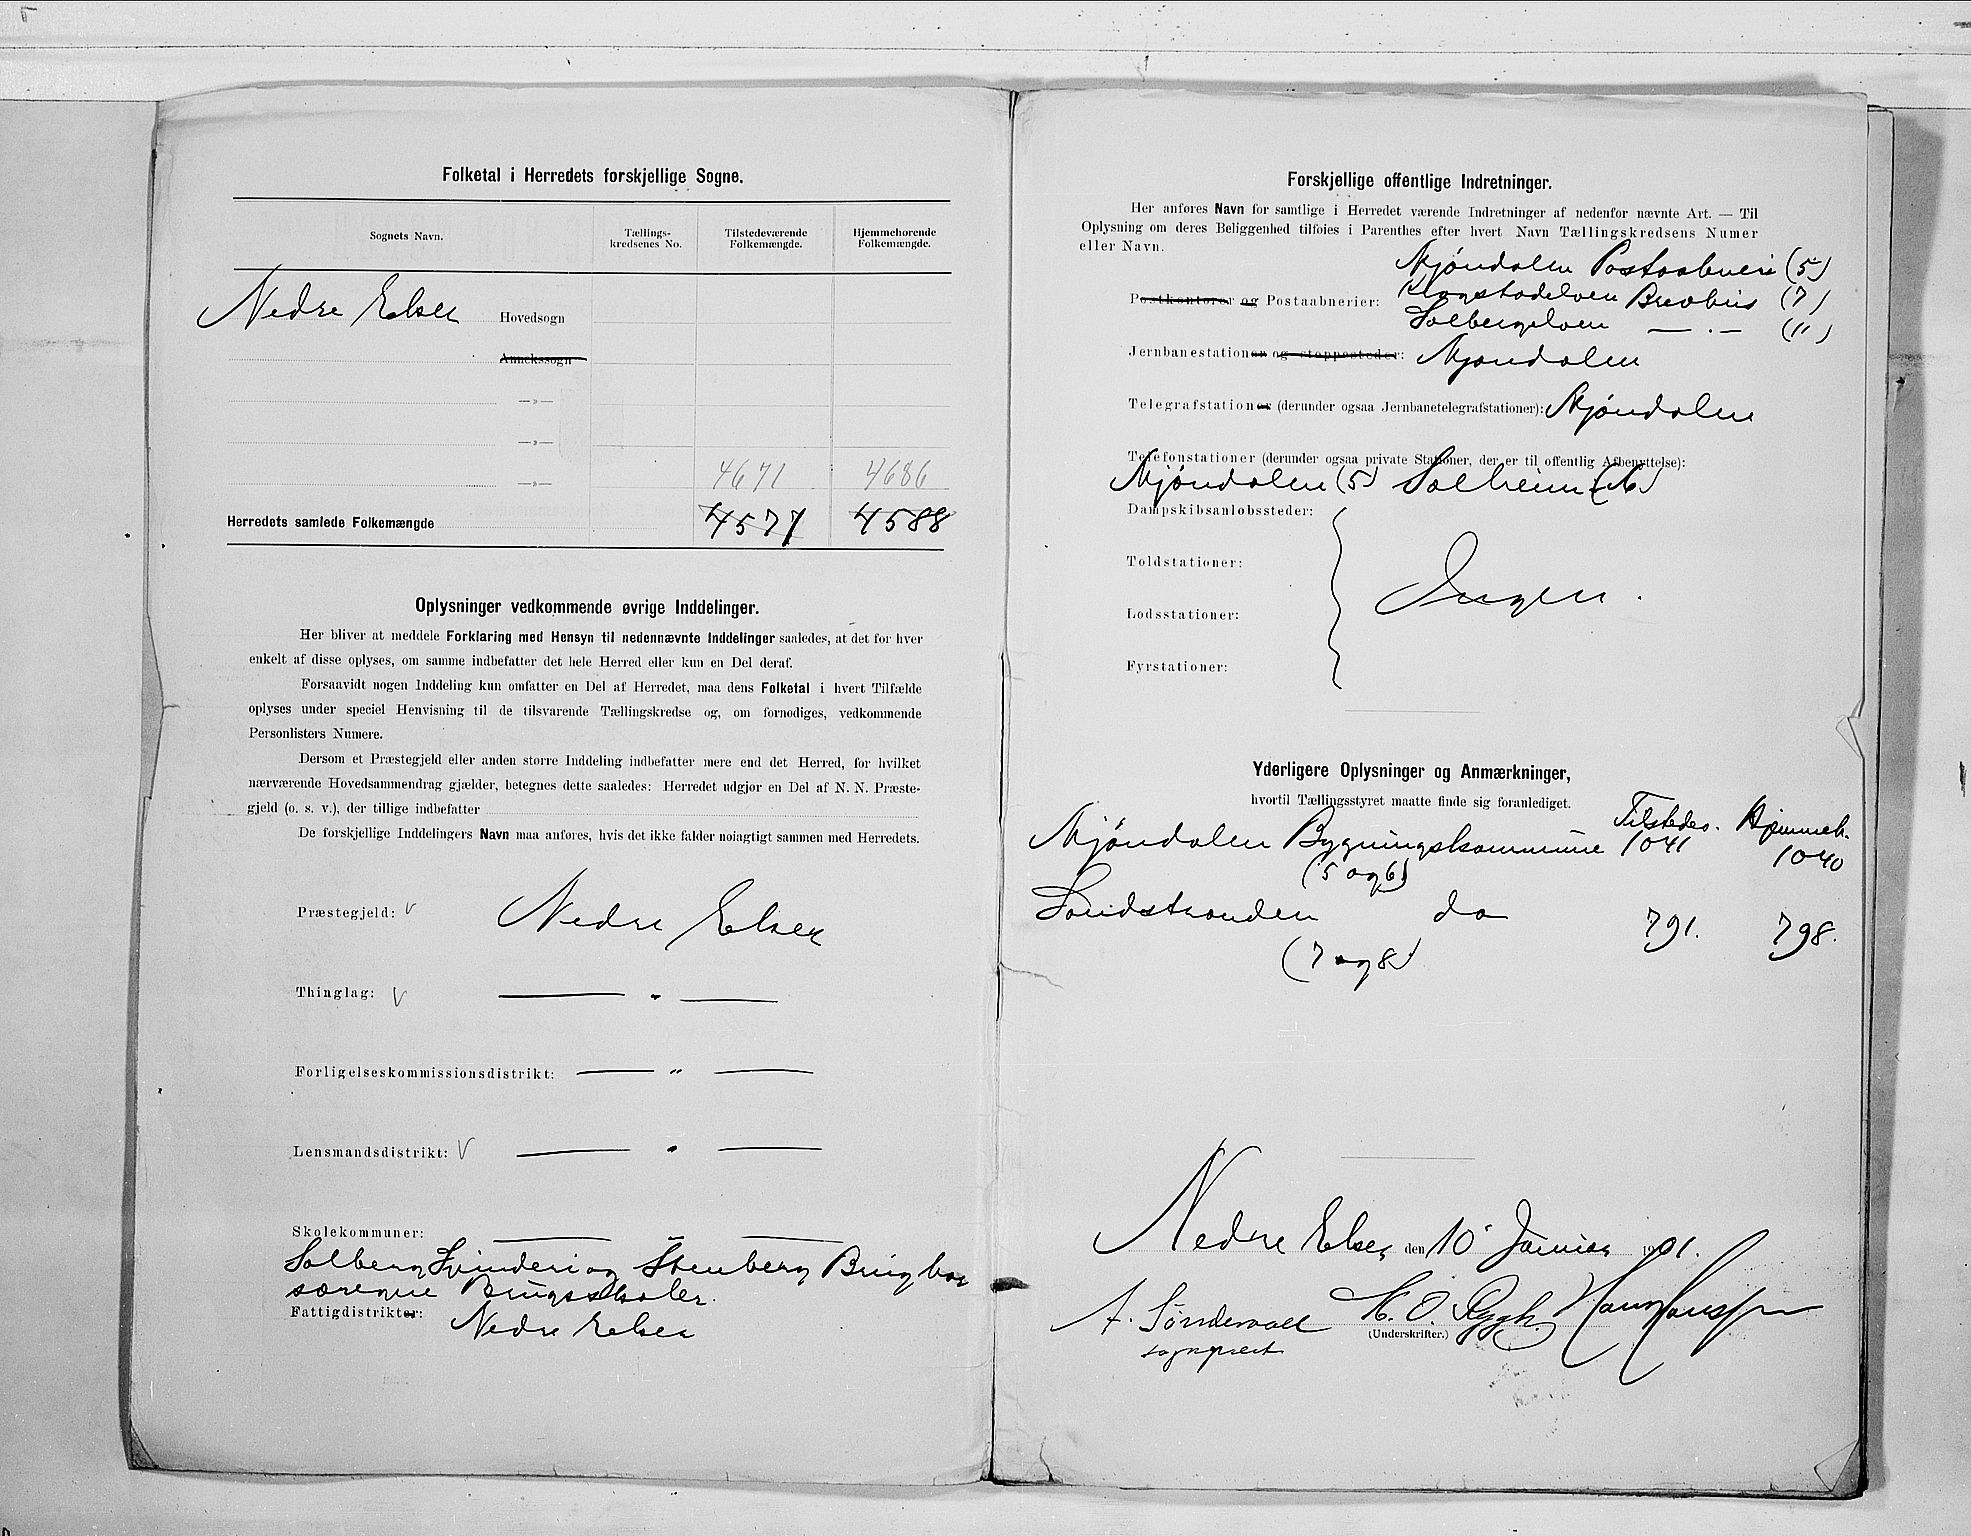 Folketal i Herredets forskjellige Sogne.
Sognets Navn.
Tællings-
kredsenes No.
Tilstedeværende
Folkemængde.
Hjemmehørende
Folkemængde.
Nedre Eker Hovedsogn
Annekssogn
—»—
—»—
4671 4686
—»—
Herredets samlede Folkemængde 4577 4588
Oplysninger vedkommende øvrige Inddelinger.
Her bliver at meddele Forklaring med Hensyn til nedennævnte Inddelinger saaledes, at det for hver
enkelt af disse oplyses, om samme indbefatter det hele Herred eller kun en Del deraf.
Forsaavidt nogen Inddeling kun omfatter en Del af Herredet, maa dens Folketal i hvert Tilfælde
oplyses under speciel Henvisning til de tilsvarende Tællingskredse og, om fornødiges, vedkommende
Personlisters Numere.
Dersom et Præstegjeld eller anden større Inddeling indbefatter mere end det Herred, for hvilket
nærværende Hovedsammendrag gjælder, betegnes dette saaledes: Herredet udgjør en Del af N. N. Præste-
gjeld (o. s. v.), der tillige indbefatter
De forskjellige Inddelingers Navn maa anføres, hvis det ikke falder nøiagtigt sammen med Herredets.
Præstegjeld: Nedre Eker
Thinglag: — " —
Forligelseskommissionsdistrikt: — " —
Lensmandsdistrikt: — " —
Skolekommuner: — " —
Solberg Spinderi og Stenberg Brug har
særegne Brugsskoler.
Fattigdistrikter: Nedre Eker
Forskjellige offentlige Indretninger.
Her anføres Navn for samtlige i Herredet værende Indretninger af nedenfor nævnte Art. — Til
Oplysning om deres Beliggenhed tilføies i Parenthes efter hvert Navn Tællingskredsens Numer
eller Navn.
Mjøndalen Postaabneri (5)
Postkontorer og Postaabnerier: Krogstadelven Brevhus (7)
Solbergelven — . — (11)
Jernbanestationer og stoppesteder: Mjøndalen
Telegrafstationer (derunder ogsaa Jernbanetelegrafstationer): Mjøndalen
Telefonstationer (derunder ogsaa private Stationer, der er til offentlig Afbenyttelse):
Mjøndalen (5) Solheim
Dampskibsanløbssteder:
Toldstationer:
Ingen.
Lodsstationer:
Fyrstationer:
Yderligere Oplysninger og Anmærkninger,
hvortil Tællingsstyret maatte finde sig foranlediget.
Tilstedev. Hjemmeh.
Mjøndalen Bygningskommune 1041 1040
(5 og 6)
Sandstranden do 791. 798.
(7 og 8)
Nedre Eker den 10 Januar 1901.
A. Søndevall H. O. Rygh. Hans Hanssen
(Underskrifter.)
sogneprest